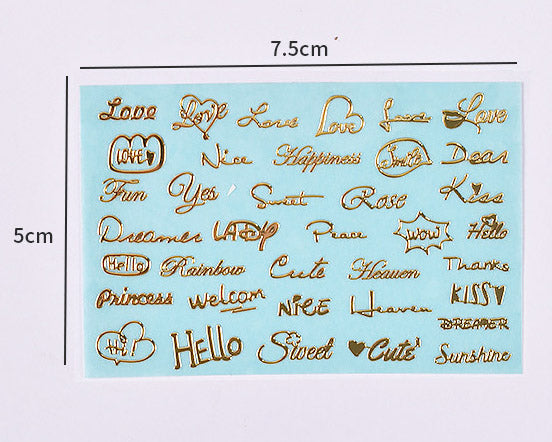 7.5cm
5cm
Love Love Love Love Love Love
LOVE Nice Happiness Smile Dear
Fun Yes Sweet Rose Kiss
Dreamer LADY Peace WOW Hello
Hello Rainbow Cute Heaven Thanks
Princess welcom NiCE Heaven KISS
DREAMER
Hi! HELLO Sweet Cute Sunshine